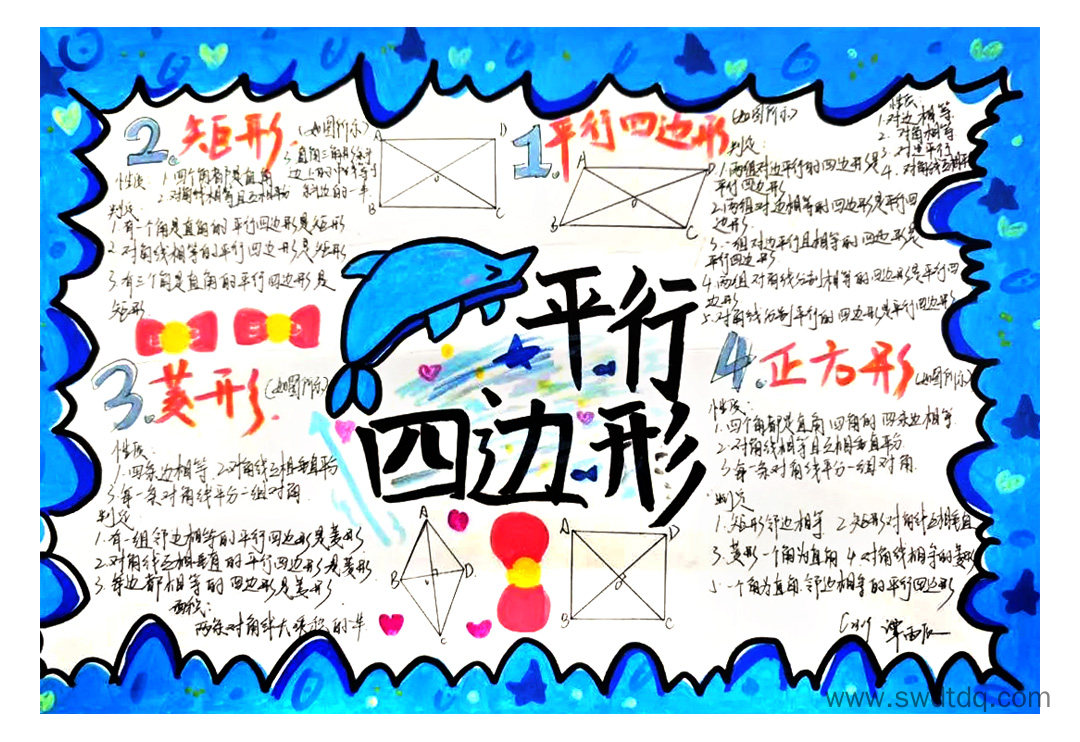 平行
四边形
1.平行四边形
(如图所示)
性质:
1.对边相等
2.对角相等
3.对边平行
4.对角线互相平分
判定:
1.两组对边平行的四边形是
平行四边形
2.两组对边相等的四边形是平行四
边形
3.一组对边平行且相等的四边形是
平行四边形
4.两组对角线分别相等的四边形是平行四
边形
5.对角线分别平行的四边形是平行四边形
A
D
B
C
O
2.矩形
(如图所示)
性质: 1.四个角都是直角
2.对角线相等且互相平分
3.直角三角形斜边
上的中线等于
斜边的一半
判定:
1.有一个角是直角的平行四边形是矩形
2.对角线相等的平行四边形是矩形
3.有三个角是直角的平行四边形是
矩形
A
D
B
C
O
3.菱形
(如图所示)
性质:
1.四条边相等 2.对角线互相垂直平分
3.每一条对角线平分一组对角
判定
1.有一组邻边相等的平行四边形是菱形
2.对角线互相垂直的平行四边形是菱形
3.每边都相等的四边形是菱形
面积:
两条对角线大乘积的一半
A
B
D
C
4.正方形
(如图所示)
性质:
1.四个角都是直角 四角的四条边相等
2.对角线相等且互相垂直平分
3.每一条对角线平分一组对角
判定
1.矩形邻边相等 2.矩形对角线互相垂直
3.菱形一个角为直角 4.对角线相等的菱形
5.一个角为直角邻边相等的平行四边形
A
D
B
C
O
www.swdtdq.com